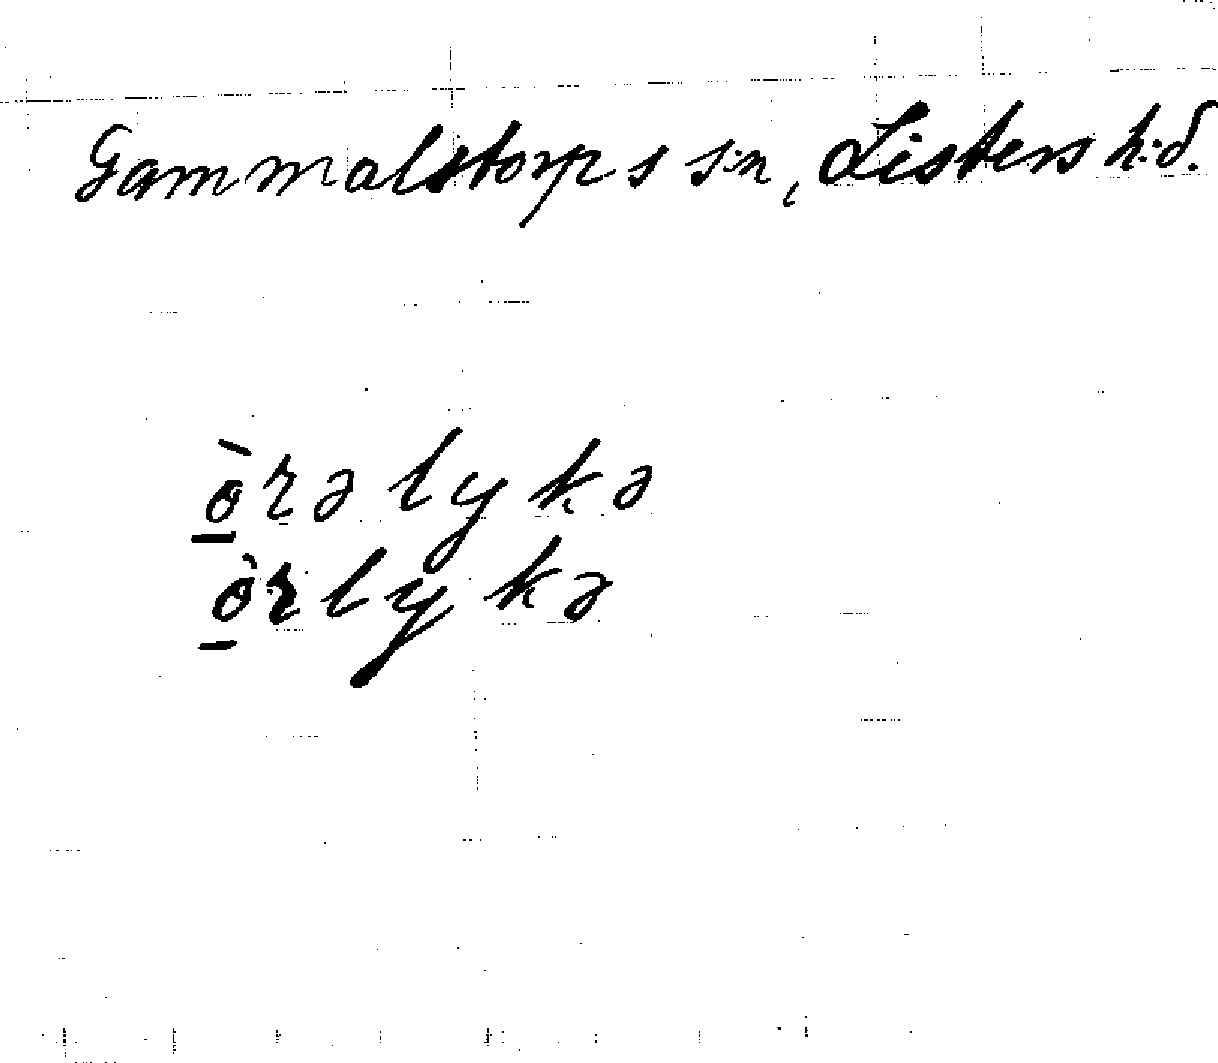 Gammalstorps s:n, Listers h:d.
ɵ̠̀rəlykə
ɵ̠̀rlykə